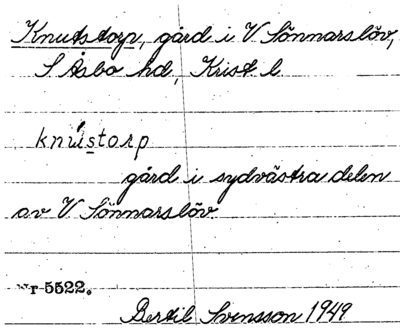 Knutstorp, gård i V Sönnarslöv,
S Åsbo hd, Krist l.
knústorp
gård i sydvästra delen
av V Sönnarslöv.
Nr 5522.
Bertil Svensson 1949